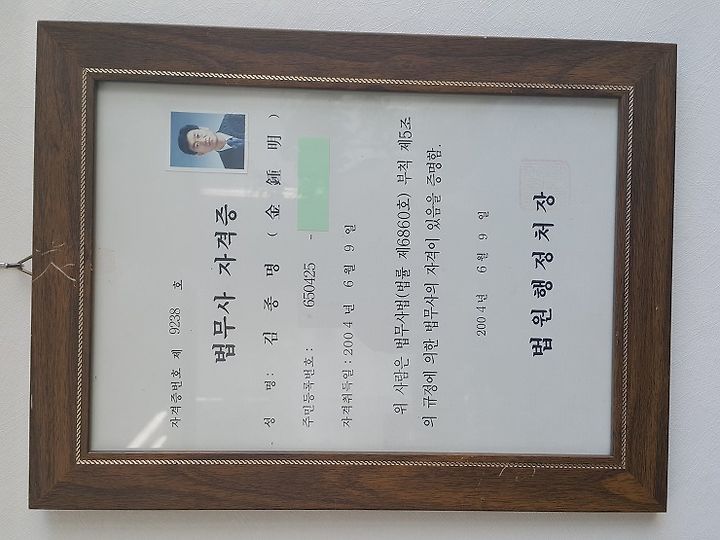 자격증번호 제 9238 호
법무사 자격증
성 명: 김 종 명 ( 金 鍾 明 )
주민등록번호: 650425 -
자격취득일: 2004 년 6 월 9 일
위 사람은 법무사법(법률 제6860호) 부칙 제5조
의 규정에 의한 법무사의 자격이 있음을 증명함.
2004 년 6 월 9 일
법원행정처장